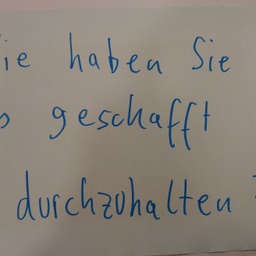 ie haben Sie
s geschafft
durchzuhalten ?